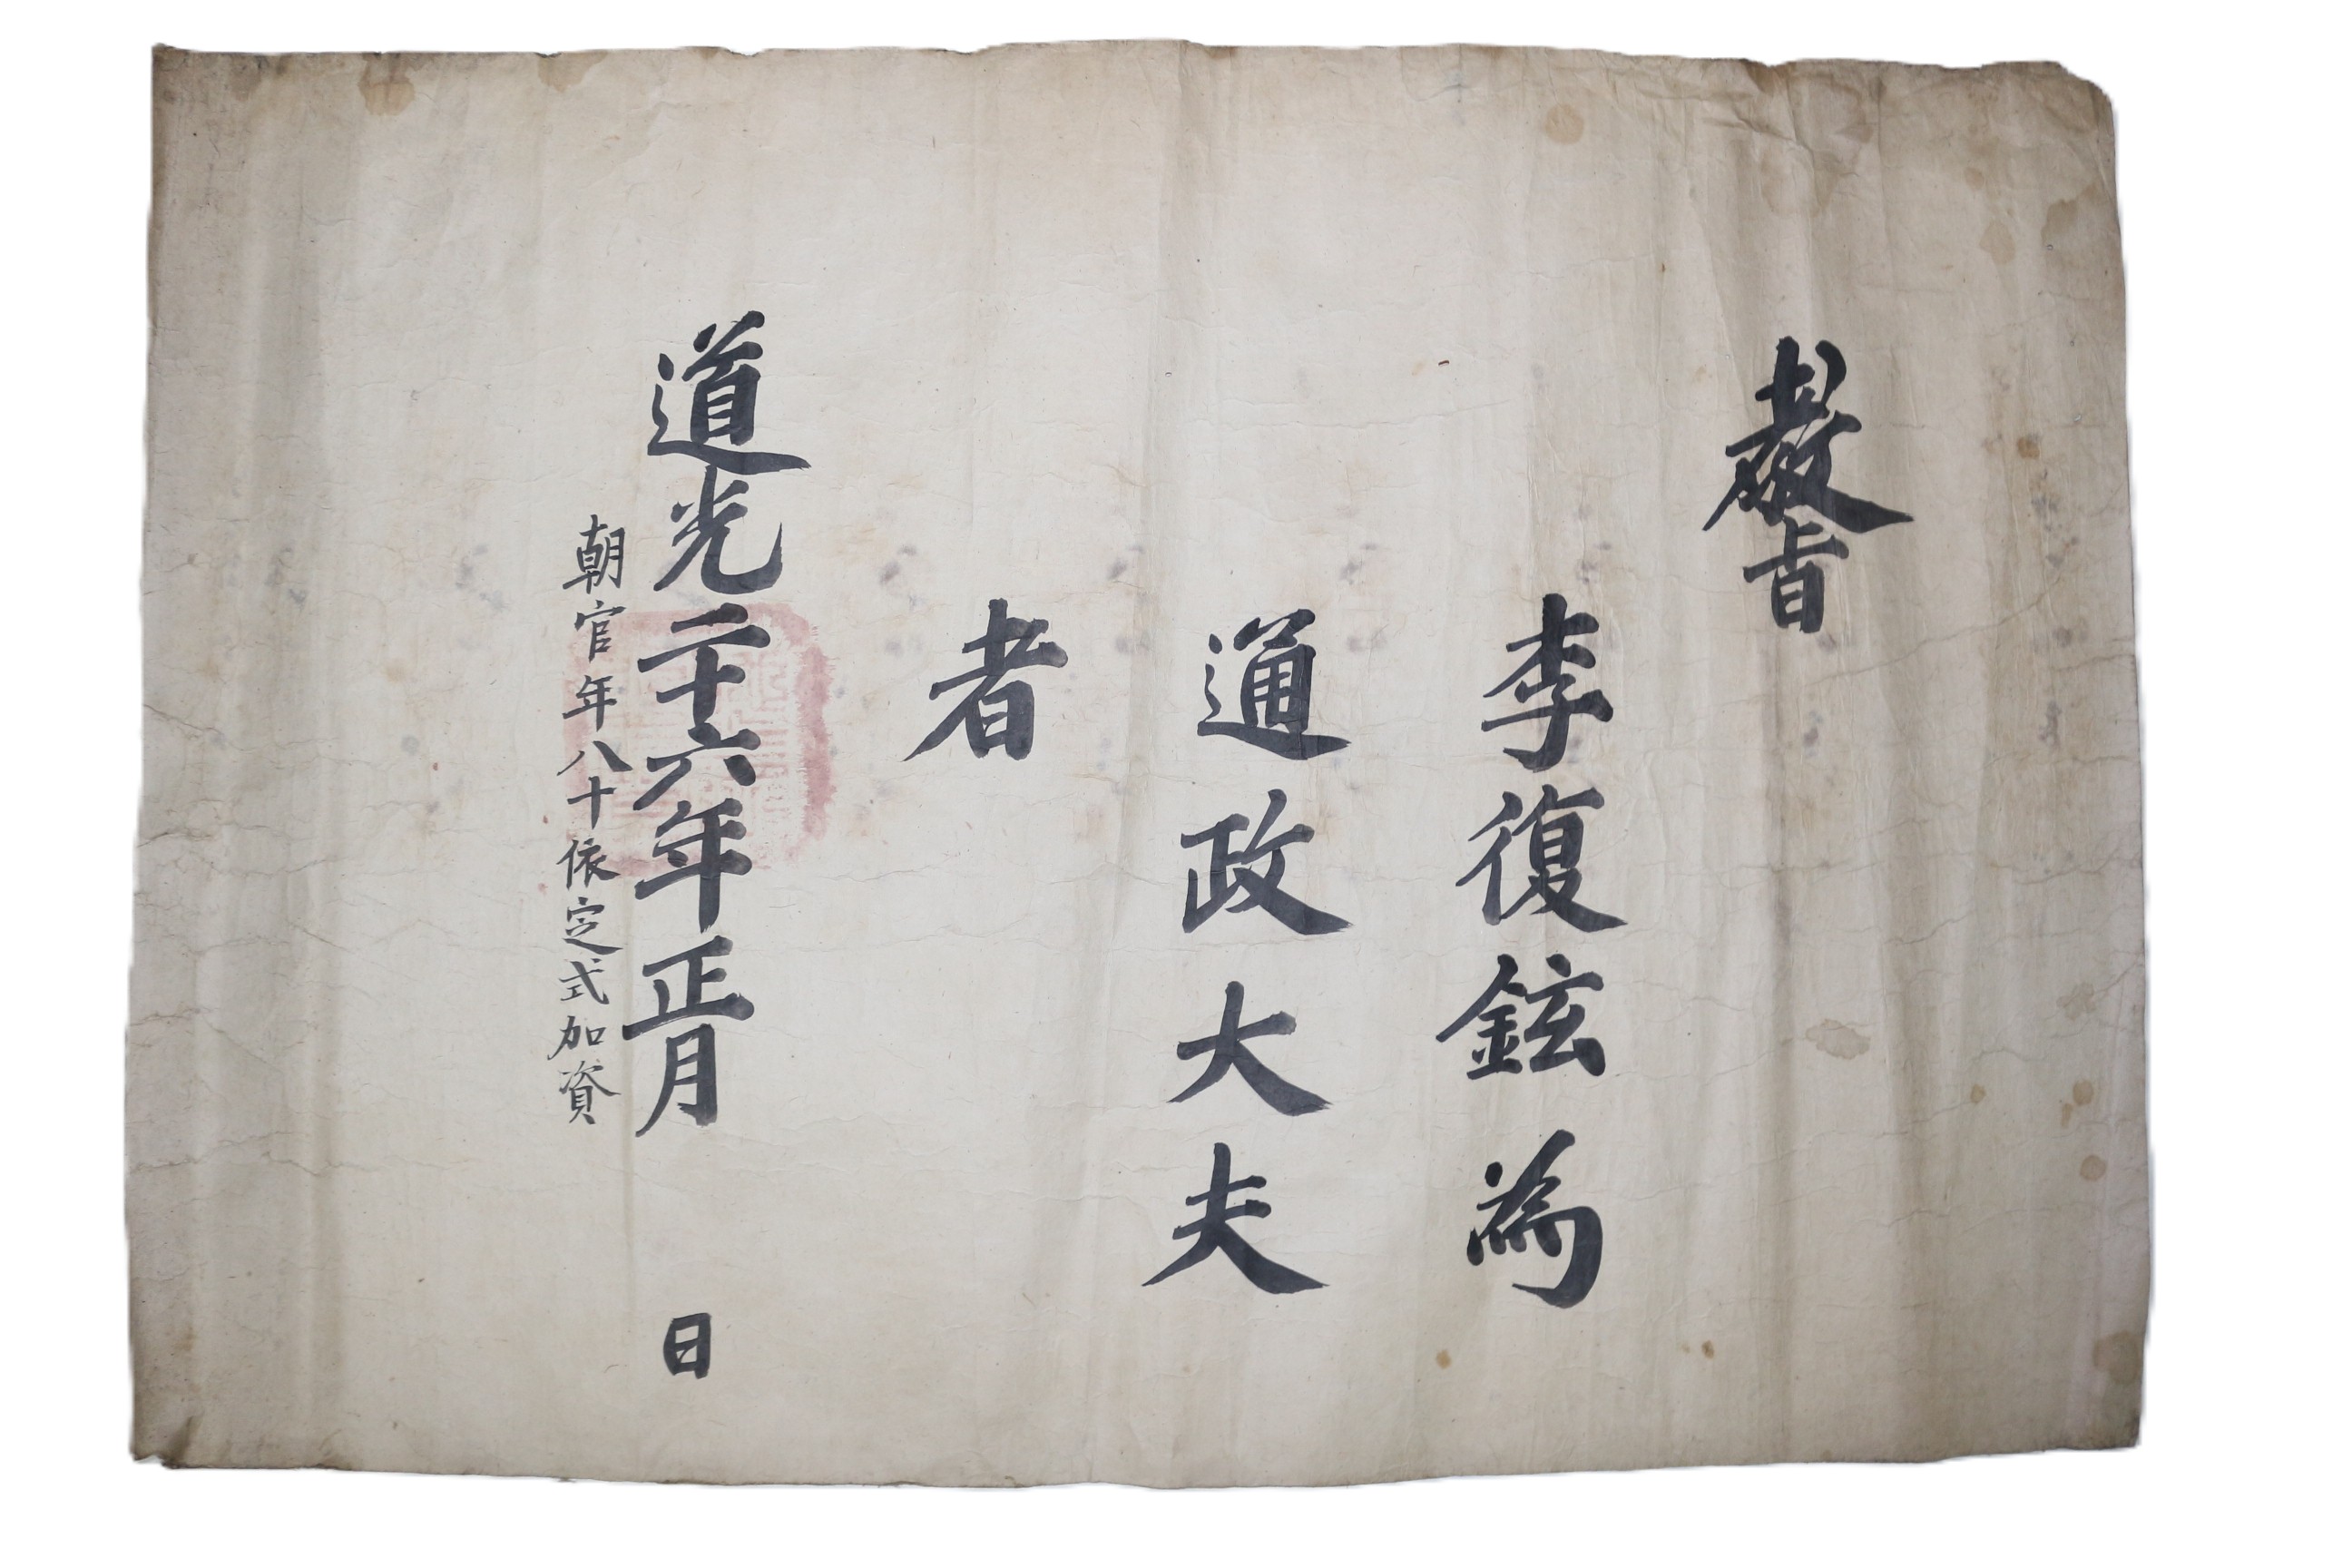 敎旨
李復鉉為
通政大夫
者
道光二十六年正月 日
朝官年八十依定式加資